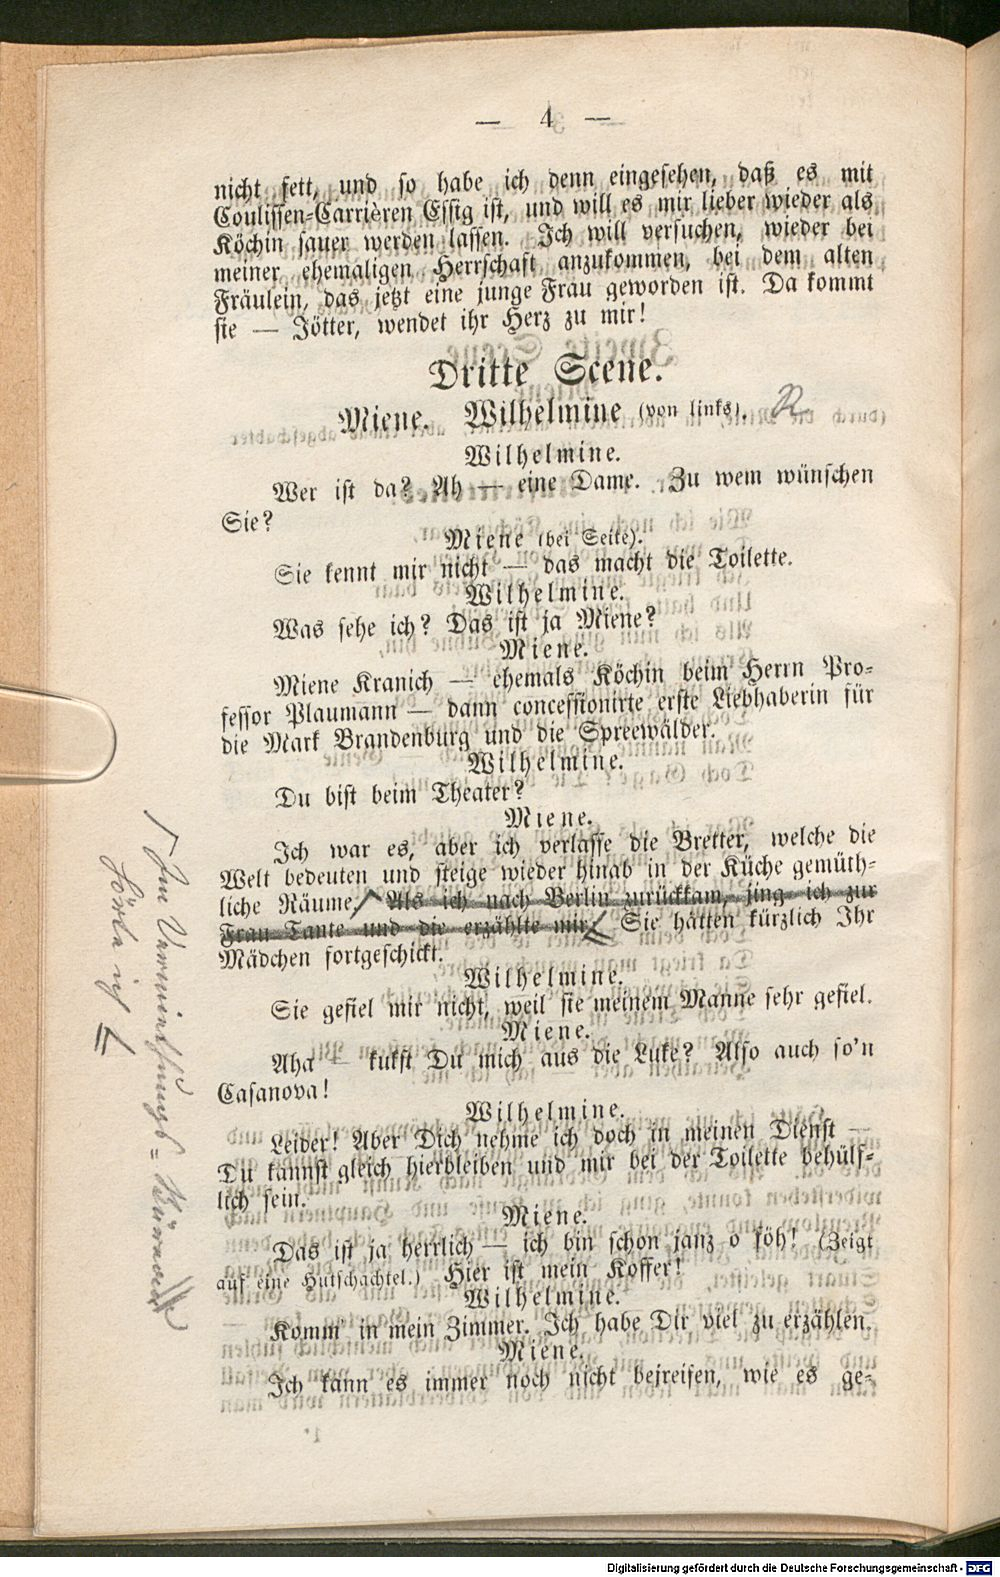 — 4 —
nicht fett, und so habe ich denn eingesehen, daß es mit
Coulissen-Carrièren Essig ist, und will es mir lieber wieder als
Köchin sauer werden lassen. Ich will versuchen, wieder bei
meiner ehemaligen Herrschaft anzukommen, bei dem alten
Fräulein, das jetzt eine junge Frau geworden ist. Da kommt
sie — Jötter, wendet ihr Herz zu mir!
Dritte Scene.
Miene. Wilhelmine (von links). R
Wilhelmine.
Wer ist da? Ah — eine Dame. Zu wem wünschen
Sie?
Miene (bei Seite).
Sie kennt mir nicht — das macht die Toilette.
Wilhelmine.
Was sehe ich? Das ist ja Miene?
Miene.
Miene Kranich — ehemals Köchin beim Herrn Pro-
fessor Plaumann — dann concessionirte erste Liebhaberin für
die Mark Brandenburg und die Spreewälder.
Wilhelmine.
Du bist beim Theater?
Miene.
Ich war es, aber ich verlasse die Bretter, welche die
Welt bedeuten und steige wieder hinab in der Küche gemüth-
liche Räume. Als ich nach Berlin zurückkam, jing ich zur
Frau Tante und die erzählte mir, Sie hätten kürzlich Ihr
Mädchen fortgeschickt.
Wilhelmine.
Sie gefiel mir nicht, weil sie meinem Manne sehr gefiel.
Miene.
Aha — kukst Du mich aus die Luke? Also auch so'n
Casanova!
Wilhelmine.
Leider! Aber Dich nehme ich doch in meinen Dienst —
Du kannst gleich hierbleiben und mir bei der Toilette behülf-
lich sein.
Miene.
Das ist ja herrlich — ich bin schon janz o föh! (Zeigt
auf eine Hutschachtel.) Hier ist mein Koffer!
Wilhelmine.
Komm' in mein Zimmer. Ich habe Dir viel zu erzählen.
Miene.
Ich kann es immer noch nicht bejreifen, wie es ge-
Im Vermiethungs-Bureau
hörte ich
Digitalisierung gefördert durch die Deutsche Forschungsgemeinschaft - DFG